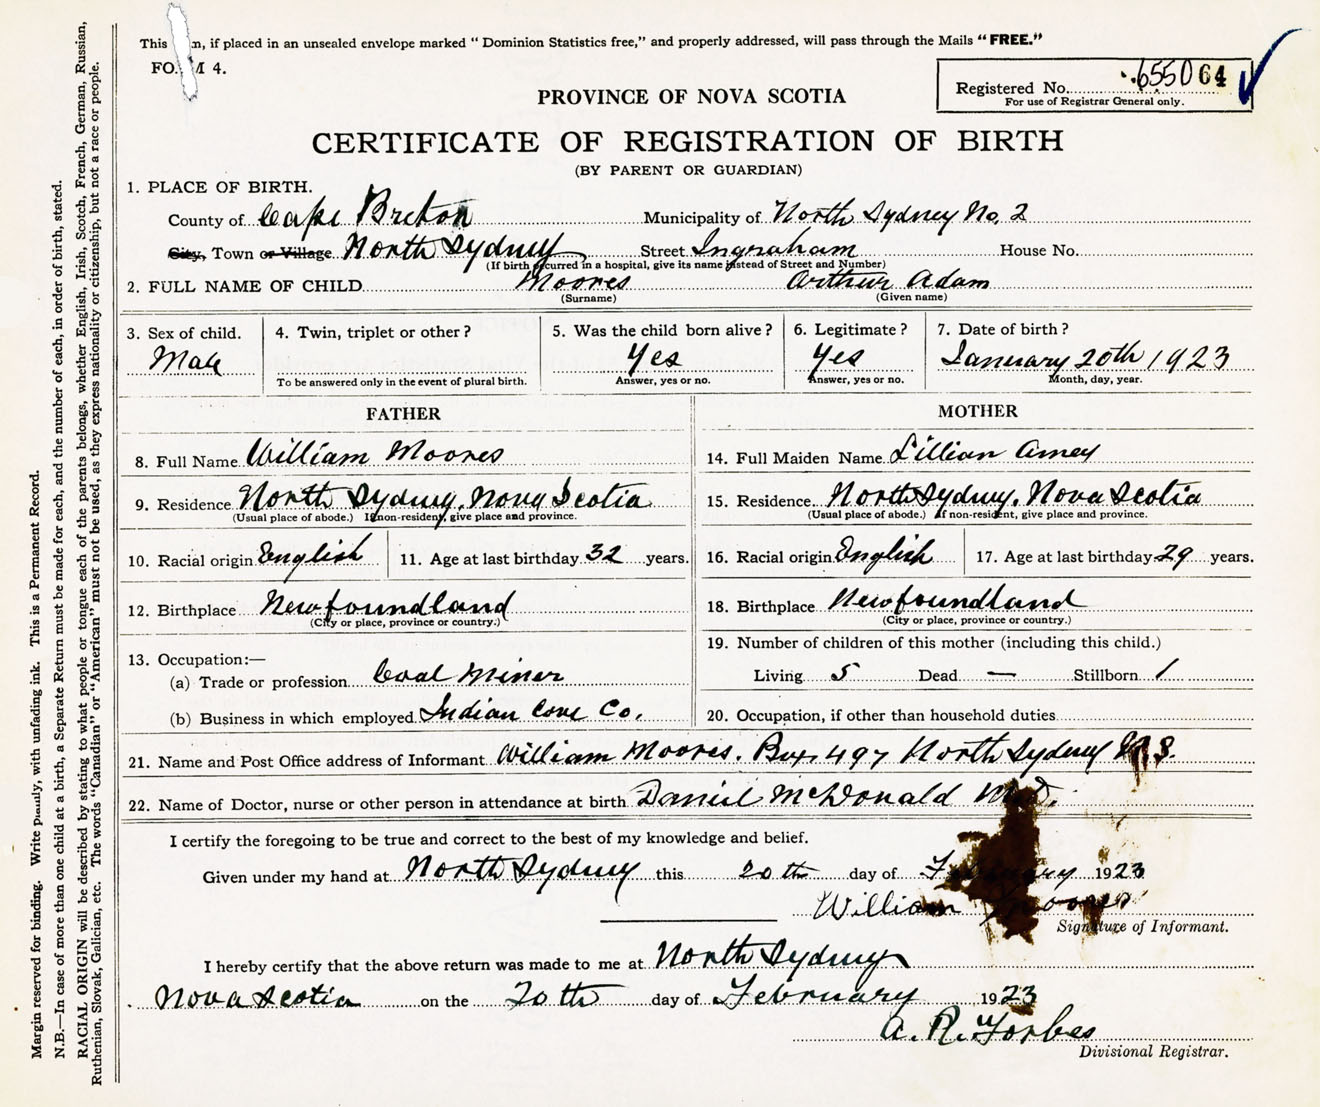 This m, if placed in an unsealed envelope marked " Dominion Statistics free," and properly addressed, will pass through the Mails " FREE."
FO M 4.
Registered No. 655064
For use of Registrar General only.
PROVINCE OF NOVA SCOTIA
CERTIFICATE OF REGISTRATION OF BIRTH
(BY PARENT OR GUARDIAN)
1. PLACE OF BIRTH.
County of Cape Breton Municipality of North Sydney No. 2
City, Town or Village North Sydney Street Ingraham House No.
(If birth occurred in a hospital, give its name instead of Street and Number)
2. FULL NAME OF CHILD Moores Arthur Adam
(Surname) (Given name)
3. Sex of child. 4. Twin, triplet or other ? 5. Was the child born alive ? 6. Legitimate ? 7. Date of birth ?
Male Yes Yes January 20th 1923
To be answered only in the event of plural birth. Answer, yes or no. Answer, yes or no. Month, day, year.
FATHER MOTHER
8. Full Name William Moores 14. Full Maiden Name Lillian Amey
9. Residence North Sydney, Nova Scotia 15. Residence North Sydney, Nova Scotia
(Usual place of abode.) If non-resident, give place and province. (Usual place of abode.) If non-resident, give place and province.
10. Racial origin English 11. Age at last birthday 32 years. 16. Racial origin English 17. Age at last birthday 29 years.
12. Birthplace Newfoundland 18. Birthplace Newfoundland
(City or place, province or country.) (City or place, province or country.)
13. Occupation:— 19. Number of children of this mother (including this child.)
(a) Trade or profession Coal Miner Living 5 Dead — Stillborn 1
(b) Business in which employed Indian Cove Co. 20. Occupation, if other than household duties
21. Name and Post Office address of Informant William Moores. Box 497 North Sydney N.S.
22. Name of Doctor, nurse or other person in attendance at birth Daniel McDonald M.D.
I certify the foregoing to be true and correct to the best of my knowledge and belief.
Given under my hand at North Sydney this 20th day of February 1923
William Moores
Signature of Informant.
I hereby certify that the above return was made to me at North Sydney
Nova Scotia on the 20th day of February 1923
A. R. Forbes
Divisional Registrar.
Margin reserved for binding. Write plainly, with unfading ink. This is a Permanent Record.
N.B.—In case of more than one child at a birth, a Separate Return must be made for each, and the number of each, in order of birth, stated.
RACIAL ORIGIN will be described by stating to what people or tongue each of the parents belongs, whether English, Irish, Scotch, French, German, Russian,
Ruthenian, Slovak, Galician, etc. The words "Canadian" or "American" must not be used, as they express nationality or citizenship, but not a race or people.